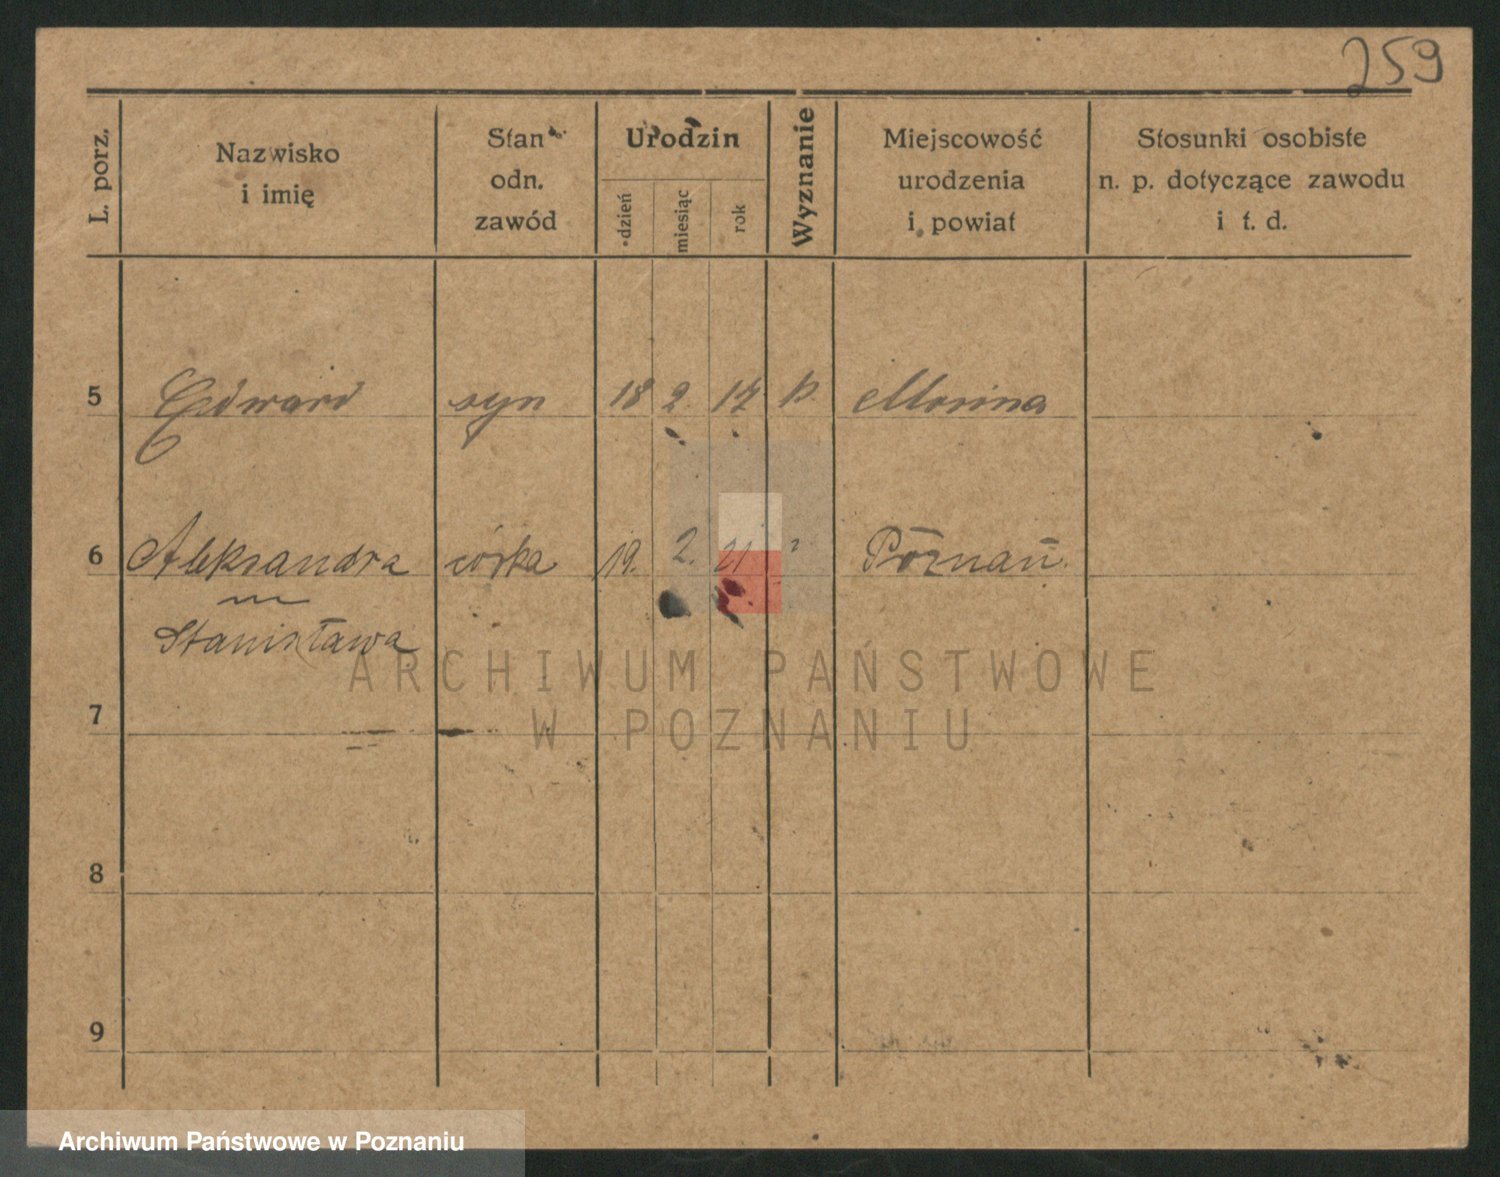 259
L. porz.
Nazwisko
i imię
Stan
odn.
zawód
Urodzin
dzień
miesiąc
rok
Wyznanie
Miejscowość
urodzenia
i powiat
Stosunki osobiste
n. p. dotyczące zawodu
i t. d.
5 Edward syn 18 2. 17
6 Aleksandra córka 19. 2. 21 Poznań.
Stanisława
7
8
9
ARCHIWUM PAŃSTWOWE
W POZNANIU
Archiwum Państwowe w Poznaniu